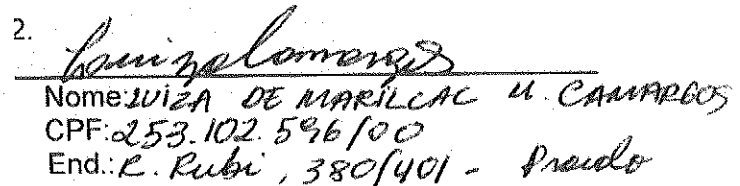 2.
Luiza Camargos
Nome: LUIZA DE MARILLAC M. CAMARGOS
CPF: 253.102.596/00
End.: R. Rubi, 380/401 - Prado